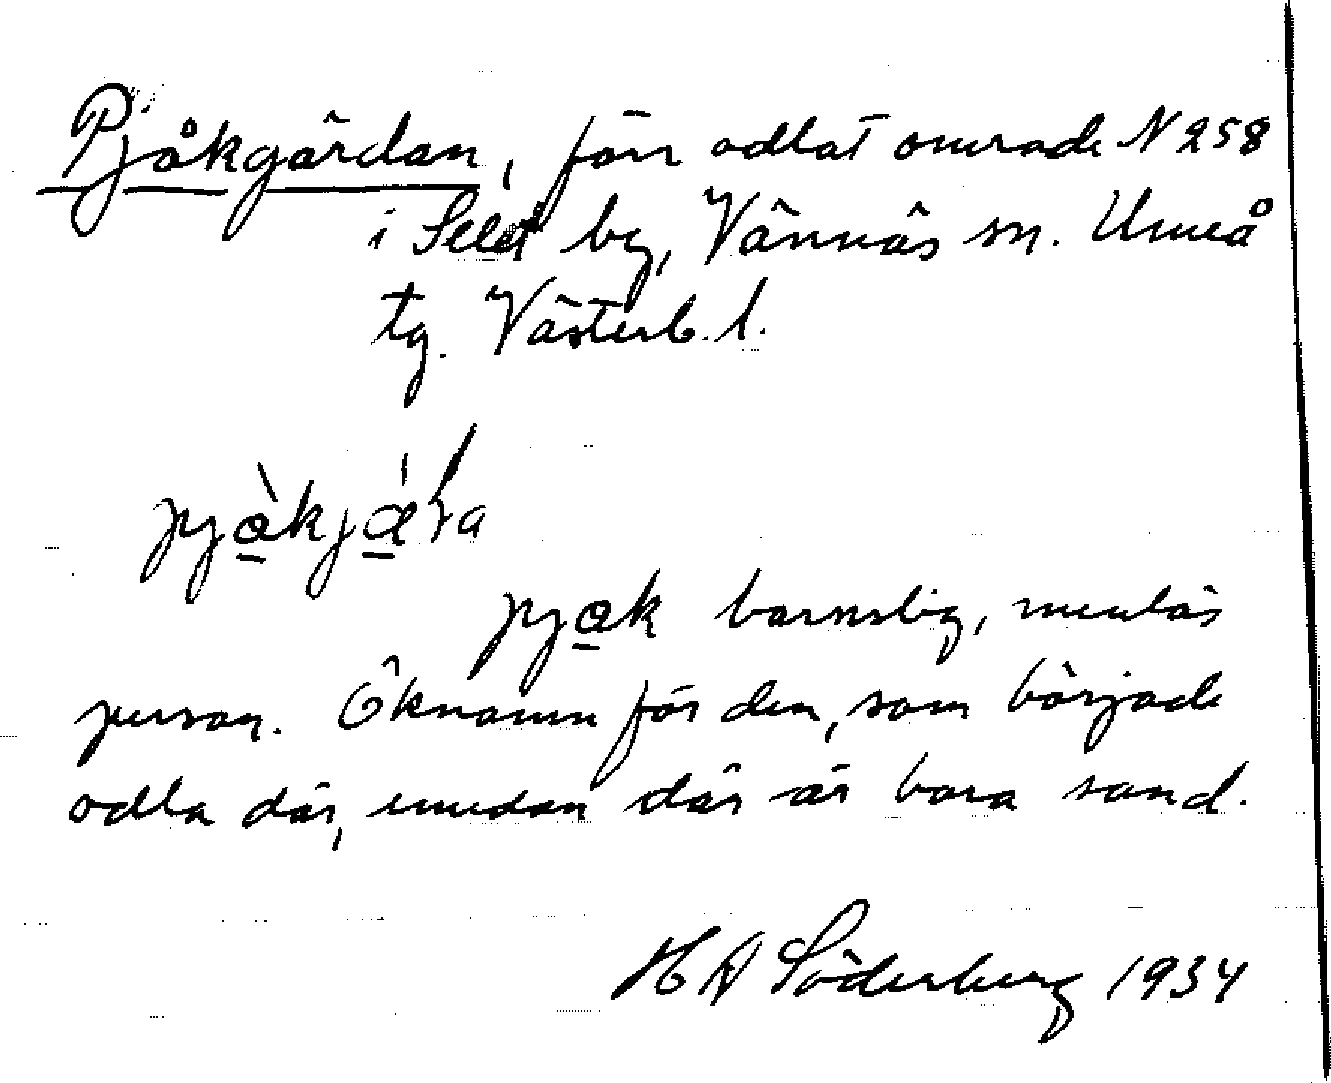 Pjåkgärdan, förr odlat område N 258
i Selet by, Vännäs sn. Umeå
tg. Västerb. l.
pjåk barnslig, menlös
person. Öknamn för den, som började
odla där, emedan där är bara sand.
H A Söderberg 1934